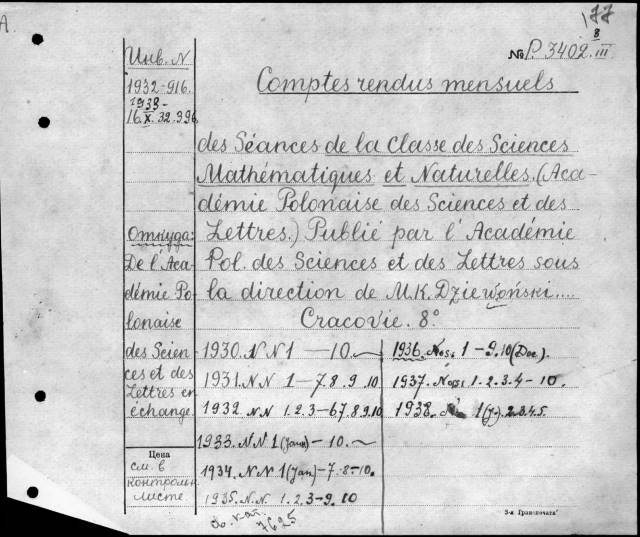 A.
177
8
№P. 3402.III
Инв. N
1932-916.
1933-
16.X.32.996
Comptes rendus mensuels
des Séances de la Classe des Sciences
Mathématiques et Naturelles. (Aca-
démie Polonaise des Sciences et des
Lettres.) Publié par l'Académie
Pol. des Sciences et des Lettres sous
la direction de M.K. Dziewoński....
Cracovie. 8°
Откуда:
De l'Aca-
démie Po-
lonaise
des Scien-
ces et des
Lettres en
échange.
Цена
см. в
контрольн.
листе.
1930. NN 1 — 10.
1931. NN 1-7. 8. 9. 10
1932. NN 1. 2. 3-6 7. 8. 9. 10
1933. NN 1 (Janv) - 10.
1934. NN 1 (Jan) - 7. 8-10.
1935. N.N. 1. 2. 3-9. 10
1936. Nos: 1-9. 10 (Dec).
1937. Nos: 1. 2. 3. 4-10.
1938. № 1 (J). 2. 3. 4. 5.
7625
3-я Гранпечать"